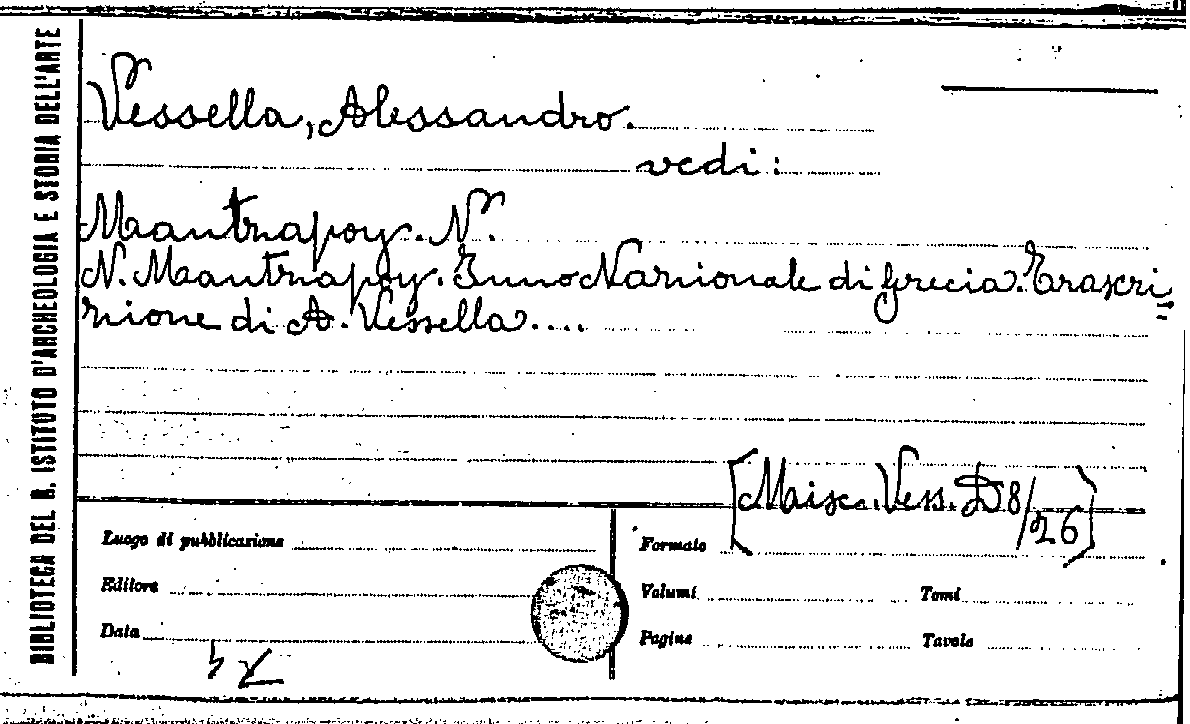 BIBLIOTECA DEL R. ISTITUTO D'ARCHEOLOGIA E STORIA DELL'ARTE
Vessella, Alessandro.
vedi:
Mantzapoy. N.
N. Mantzapoy. Inno Nazionale di Grecia. Trascri=
zione di A. Vessella....
[Misc. Vess. D 8/26]
Luogo di pubblicazione
Formato
Editore
Volumi
Tomi
Data
Pagine
Tavole